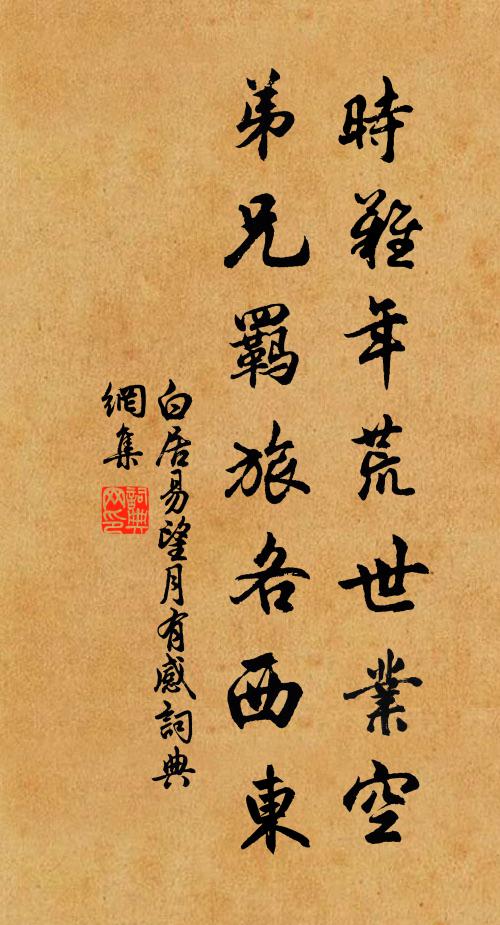 時難年荒世業空
弟兄羈旅各西東
白居易望月有感詞典
網集
詞典
网印